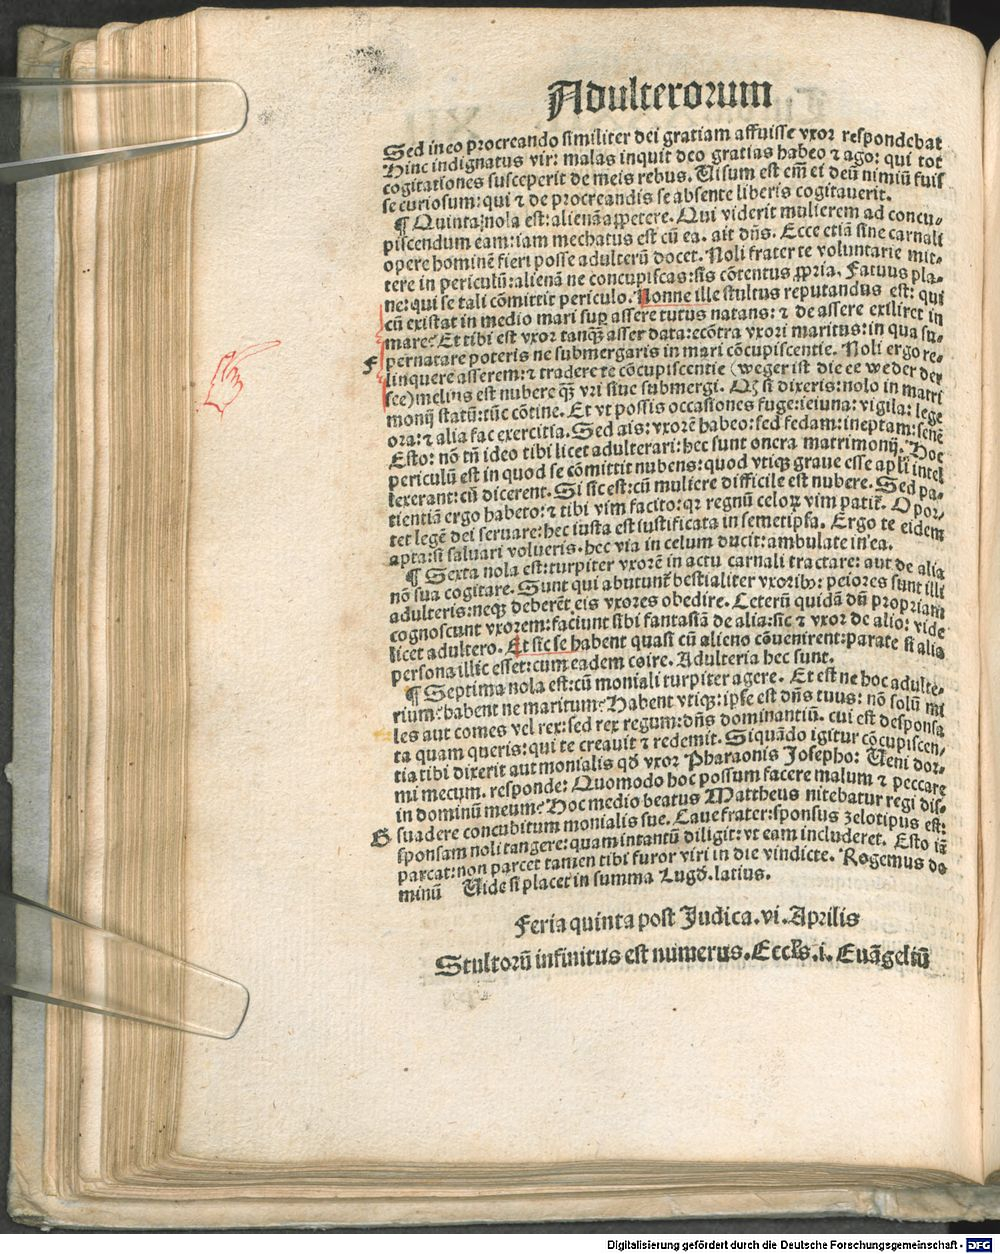 Adulterorum
Sed in eo procreando similiter dei gratiam affuisse vxor respondebat
Hinc indignatus vir: malas inquit deo gratias habeo ⁊ ago: qui tot
cogitationes susceperit de meis rebus. Visum est em̄ ei deū nimiū fuis
se curiosum: qui ⁊ de procreandis se absente liberis cogitauerit.
¶ Quinta nola est: alienā appetere. Qui viderit mulierem ad concu⸗
piscendum eam: iam mechatus est cū ea. ait dn̄s. Ecce etiā sine carnali
opere hominē fieri posse adulterū docet. Noli frater te voluntarie mit⸗
tere in periculū: alienā ne concupiscas: sis cōtentus ꝓpria. Fatuus pla⸗
ne: qui se tali cōmittit periculo. Nonne ille stultus reputandus est: qui
cū existat in medio mari suꝑ assere tutus natans: ⁊ de assere exiliret in
mare? Et tibi est vxor tanqȝ asser data: ecōtra vxori maritus: in qua su⸗
F pernatare poteris ne submergaris in mari cōcupiscentie. Noli ergo re⸗
linquere asserem: ⁊ tradere te cōcupiscentie (weger ist die ee weder der
see) melius est nubere qȝ vri siue submergi. Qȝ si dixeris: nolo in matri
monij statū: tūc cōtine. Et vt possis occasiones fuge: ieiuna: vigila: lege
ora: ⁊ alia fac exercitia. Sed ais: vxorē habeo: sed fedam: ineptam: senē
Esto: nō tn̄ ideo tibi licet adulterari: hec sunt onera matrimonij. Hoc
periculū est in quod se cōmittit nubens: quod vtiqȝ graue esse apl̄i intel
lexerant: cū dicerent. Si sic est: cū muliere difficile est nubere. Sed pa⸗
tientiā ergo habeto: ⁊ tibi vim facito: qr regnū celoꝝ vim patit̄. Opor⸗
tet legē dei seruare: hec iusta est iustificata in semetipsa. Ergo te eidem
apta: si saluari volueris. hec via in celum ducit: ambulate in ea.
¶ Sexta nola est: turpiter vxorē in actu carnali tractare: aut de alia
nō sua cogitare. Sunt qui abutunt̄ bestialiter vxoribȝ: peiores sunt illi
adulteris: neqȝ deberēt eis vxores obedire. Ceterū quidā dū propriam
cognoscunt vxorem: faciunt sibi fantasiā de alia: sic ⁊ vxor de alio: vide
licet adultero. Et sic se habent quasi cū alieno cōuenirent: parate si alia
persona illic esset: cum eadem coire. Adulteria hec sunt.
¶ Septima nola est: cū moniali turpiter agere. Et est ne hoc adulte⸗
rium? habent ne maritum? Habent vtiqȝ: ipse est dn̄s tuus: nō solū mi
les aut comes vel rex: sed rex regum: dn̄s dominantiū. cui est desponsa
ta quam queris: qui te creauit ⁊ redemit. Siquādo igitur cōcupiscen⸗
tia tibi dixerit aut monialis qd̄ vxor Pharaonis Josepho: Veni dor⸗
mi mecum. responde: Quomodo hoc possum facere malum ⁊ peccare
in dominū meum? Hoc medio beatus Mattheus nitebatur regi dis⸗
G suadere concubitum monialis sue. Caue frater: sponsus zelotipus est:
sponsam noli tangere: quam intantū diligit: vt eam includeret. Esto iā
parcat: non parcet tamen tibi furor viri in die vindicte. Rogemus do
minū Vide si placet in summa Lugd̄. latius.
Feria quinta post Judica. vi. Aprilis
Stultorū infinitus est numerus. Eccl̄s. i. Euāgeliū
Digitalisierung gefördert durch die Deutsche Forschungsgemeinschaft - DFG